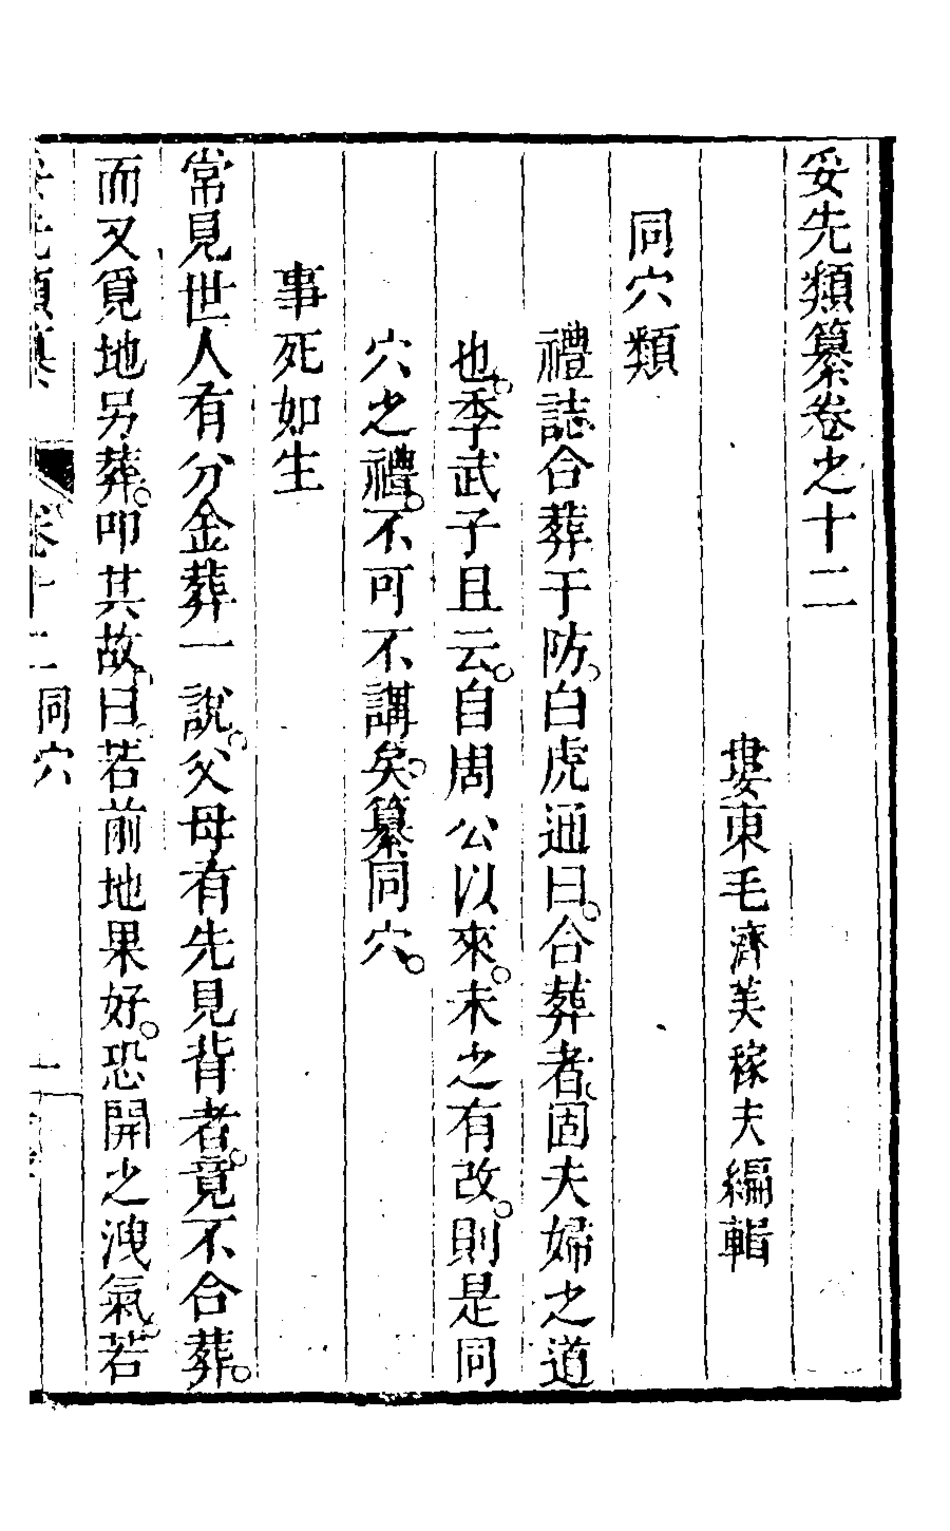 妥先類纂卷之十二
婁東毛濟美稼夫編輯
同穴類
禮誌合葬于防白虎通曰。合葬者。固夫婦之道
也。季武子且云。自周公以來。未之有改。則是同
穴之禮。不可不講矣。纂同穴。
事死如生
常見世人有分金葬一說。父母有先見背者。竟不合葬。
而又覓地另葬。叩其故。曰。若前地果好。恐開之洩氣。若
妥先類纂 卷十二 同穴 一